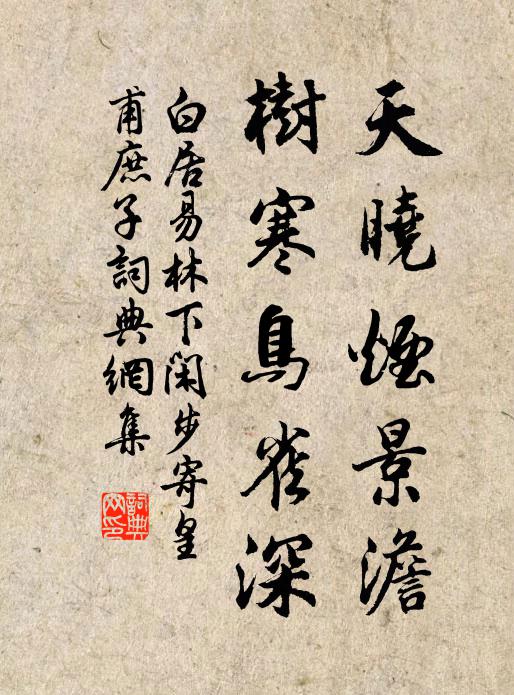 天曉煙景澹
樹寒鳥雀深
白居易林下閑步寄皇
甫庶子詞典網集
詞典网印